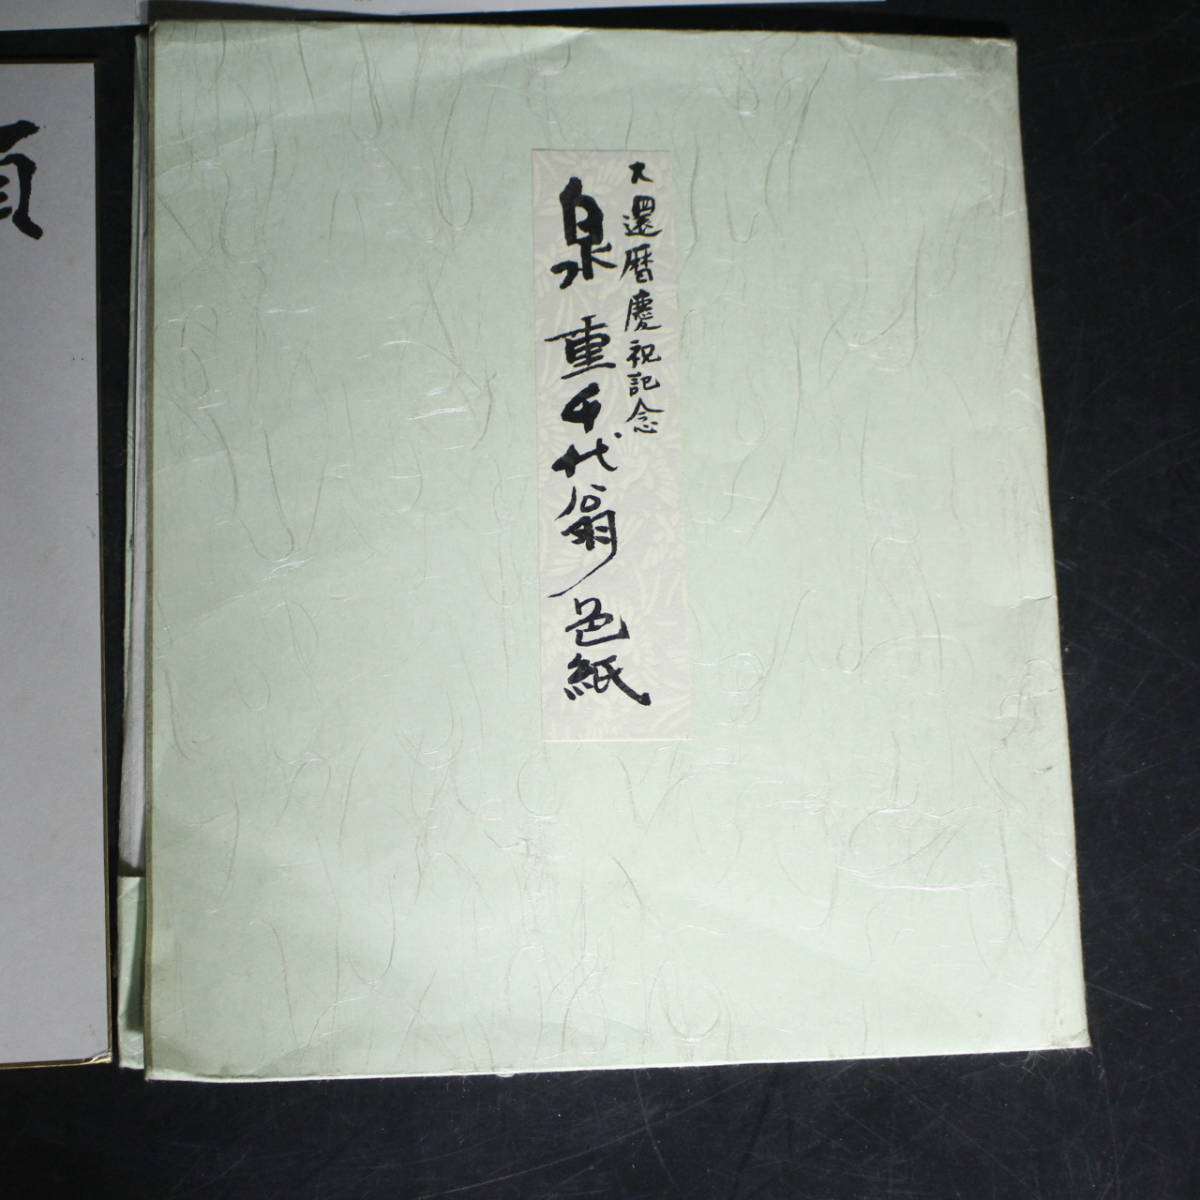 大還暦慶祝記念
泉重千代翁色紙